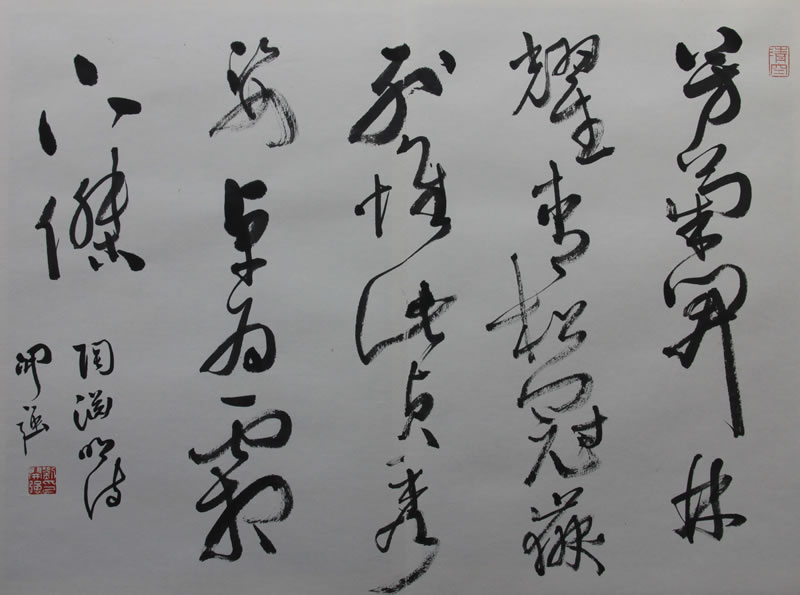 芳菊開林
耀青松冠巖
列懷此貞秀
姿卓為霜
下傑
陶淵明詩